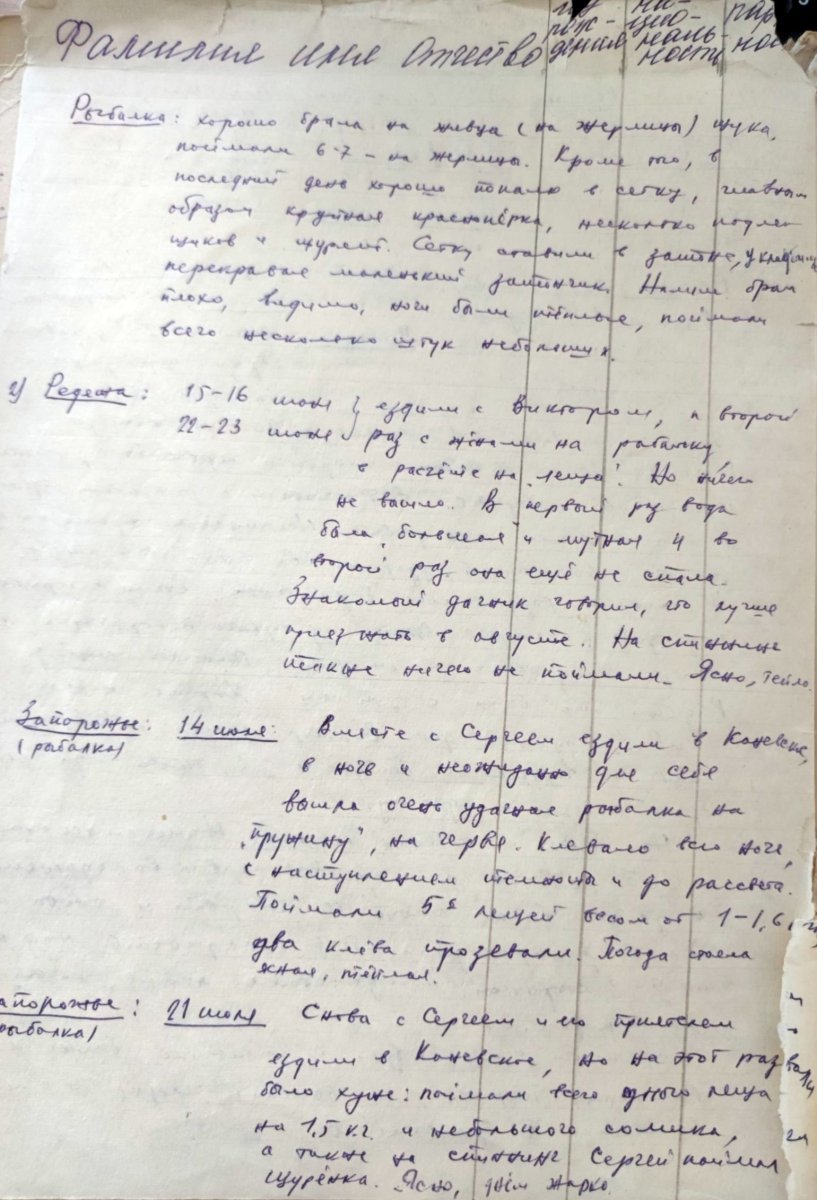 Фамилия имя отчество
рож- цио-
дения наль- нос
ность
Рыбалка: хорошо брала на живца (на жерлицы) щука,
поймали 6-7 – на жерлицы. Кроме того, в
последний день хорошо попало в сетку, главным
образом крупная краснопёрка, несколько подле-
щиков и щурят. Сетку ставили в затоне,
перекрывая маленький затончик. Налим брал
плохо, видимо, ночи были тёплые, поймали
всего несколько штук небольших.
2) Редежа: 15-16 июня } ездили с Виктором, а второй
22-23 июня раз с жёнами на рыбалку
в расчёте на "леща". Но ничего
не вышло. В первый раз вода
была "большая" и мутная и во
второй раз она ещё не спала.
Знакомый дачник говорил, что лучше
приезжать в августе. На спиннинг
также ничего не поймали. Ясно, тепло.
Запорожье: 14 июля: Вместе с Сергеем ездили в Каневское,
(рыбалка) в ночь и неожиданно для себя
вышла очень удачная рыбалка на
"пружину", на червя. Клевало всю ночь,
с наступлением темноты и до рассвета.
Поймали 5 лещей весом от 1-1,6
два клёва прозевали. Погода стояла
ясная, тёплая.
апорожье: 21 июля Снова с Сергеем и его приятелем
рыбалка) ездили в Каневское, но на этот раз
было хуже: поймали всего одного леща
на 1,5 кг. и небольшого сомика,
а также на спиннинг Сергей поймал
щурёнка. Ясно, днём жарко.